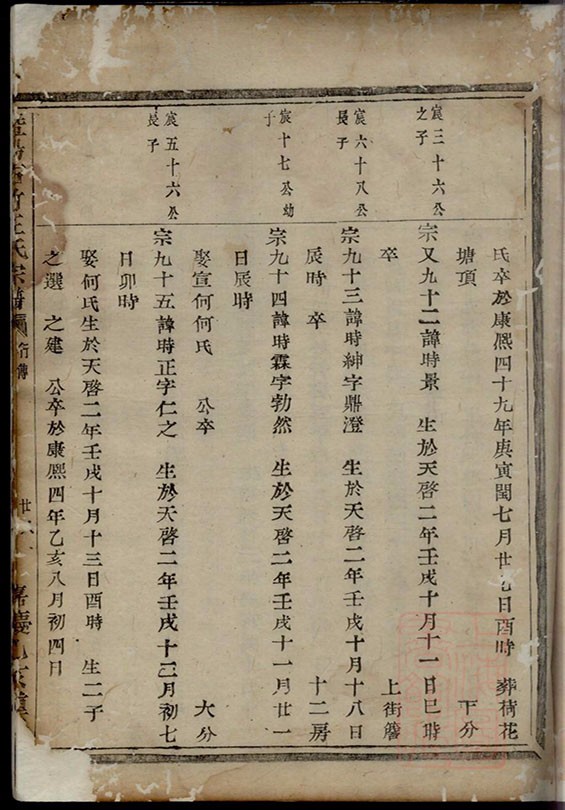 氏卒於康熙四十九年庚寅閏七月廿九日酉時　葬荷花
塘頂　下分
宸三十六公
之子
宗又九十二諱時景　生於天啓二年壬戌十月十一日巳時
卒　上街簷
宸六十八公
長子
宗九十三諱時紳字鼎澄　生於天啓二年壬戌十月十八日
辰時　卒　十二房
宸十七公幼
子
宗九十四諱時霖字勃然　生於天啓二年壬戌十一月廿一
日辰時
娶宣何何氏　公卒　大分
宸五十六公
長子
宗九十五諱時正字仁之　生於天啓二年壬戌十二月初七
日卯時
娶何氏生於天啓二年壬戌十月十三日酉時　生二子
之選　之建　公卒於康熙四年乙亥八月初四日
氏宗譜
行傳
廿
嘉慶